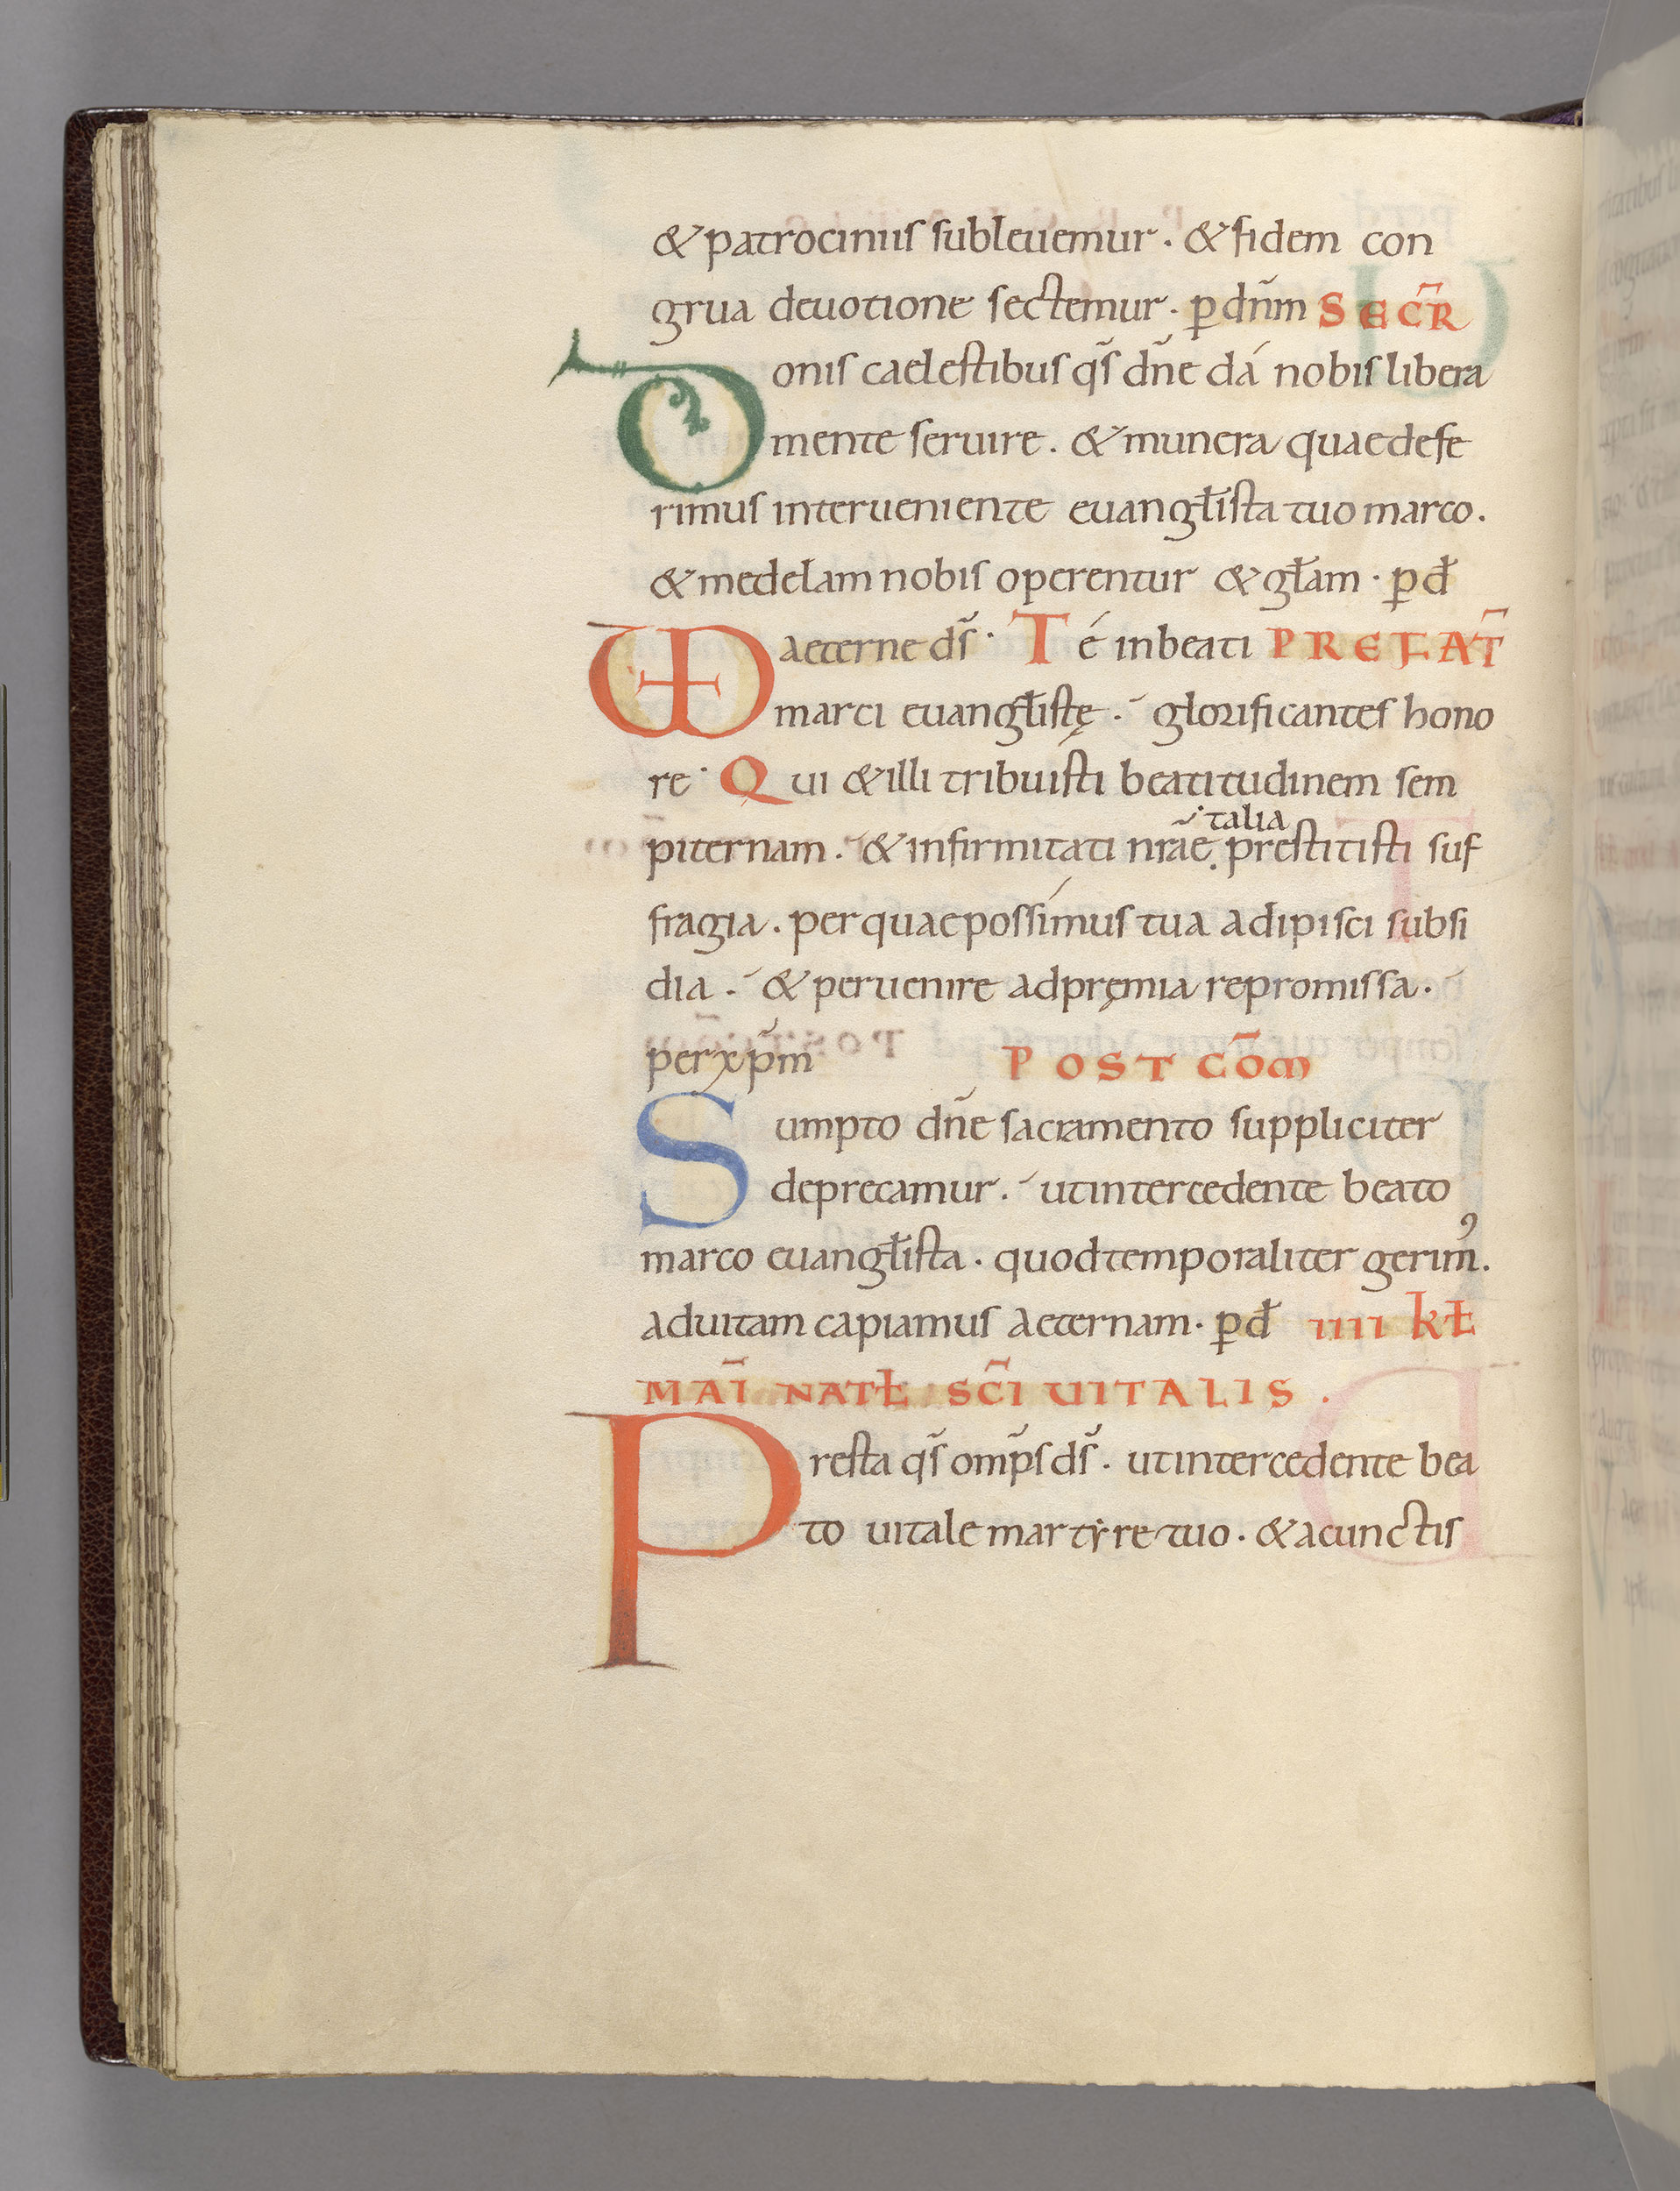 & patrociniis subleuemur · & fidem con
grua deuotione sectemur · p̲ dn̄m SECR̄
Donis caelestibus qs̄ dn̄e dá nobis libera
mente seruire . & munera quae defe
rimus interueniente euangłista tuo marco .
& medelam nobis operentur & głam · p̲ đ
VD aeterne ds̄ · Té in beati PREFAT̄
marci euangłistę . glorificantes hono
re · Qui & illi tribuisti beatitudinem sem
talia
piternam . & infirmitati nr̄ae prestitisti suf
fragia . per quae possímus tua adipisci subsi
dia . & peruenire ad pręmia repromissa .
per xp̄m POST CŌM
Sumpto dn̄e sacramento suppliciter
deprecamur . ut intercedente beato
marco euangłista . quod temporaliter gerimꝰ .
ad uitam capiamus aeternam . p̲ đ IIII kł
MAĪ NATł SC̄I UITALIS .
Presta qs̄ omp̄s ds̄ . ut intercedente bea
to uitale martẏre tuo . & a cunctis